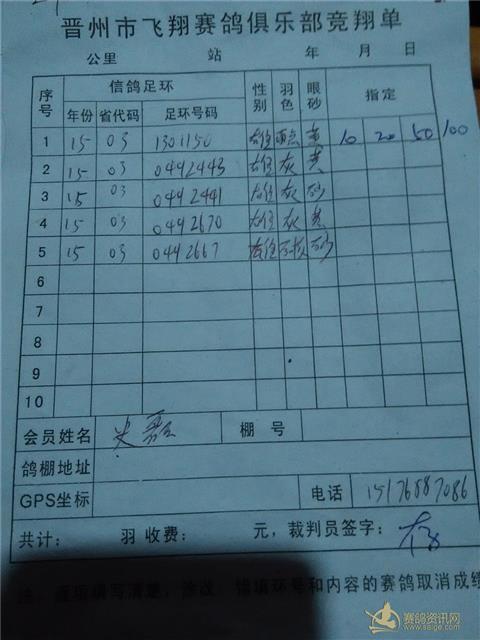 晋州市飞翔赛鸽俱乐部竞翔单
公里 站 年 月 日
序号 信鸽足环 性别 羽色 眼砂 指定
年份 省代码 足环号码
1 15 03 1301150 雄 雨点 黄 10 20 50 100
2 15 03 0442443 雄 灰 黄
3 15 03 0442441 雄 灰 砂
4 15 03 0442670 雄 灰 黄
5 15 03 0442667 雄 砂
6
7
8
9
10
会员姓名 史磊 棚号
鸽棚地址
GPS坐标 电话 15176887086
共计: 羽 收费: 元, 裁判员签字:
注: 填写清楚, 涂改、错填环号和内容的赛鸽取消成绩
赛鸽资讯网
www.saige.com